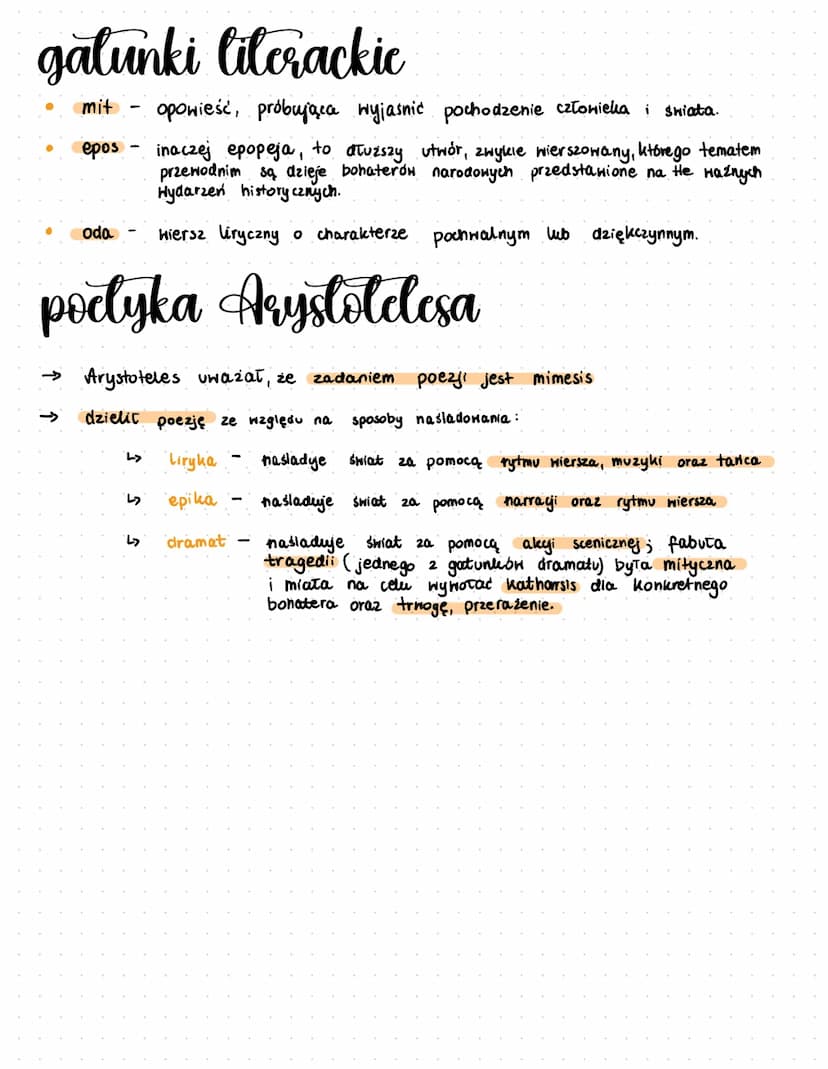 gatunki literackie
• mit - opowieść, próbująca wyjaśnić pochodzenie człowieka i świata.
• epos - inaczej epopeja, to dłuższy utwór, zwykle wierszowany, którego tematem
przewodnim są dzieje bohaterów narodowych przedstawione na tle ważnych
wydarzeń historycznych.
• oda - wiersz liryczny o charakterze pochwalnym lub dziękczynnym.
poetyka Arystotelesa
→ Arystoteles uważał, że zadaniem poezji jest mimesis
→ dzielił poezję ze względu na sposoby naśladowania:
↳ liryka - naśladuje świat za pomocą rytmu wiersza, muzyki oraz tańca
↳ epika - naśladuje świat za pomocą narracji oraz rytmu wiersza
↳ dramat - naśladuje świat za pomocą akcji scenicznej; fabuła
tragedii (jednego z gatunków dramatu) była mityczna
i miała na celu wywołać katharsis dla konkretnego
bohatera oraz trwogę, przerażenie.